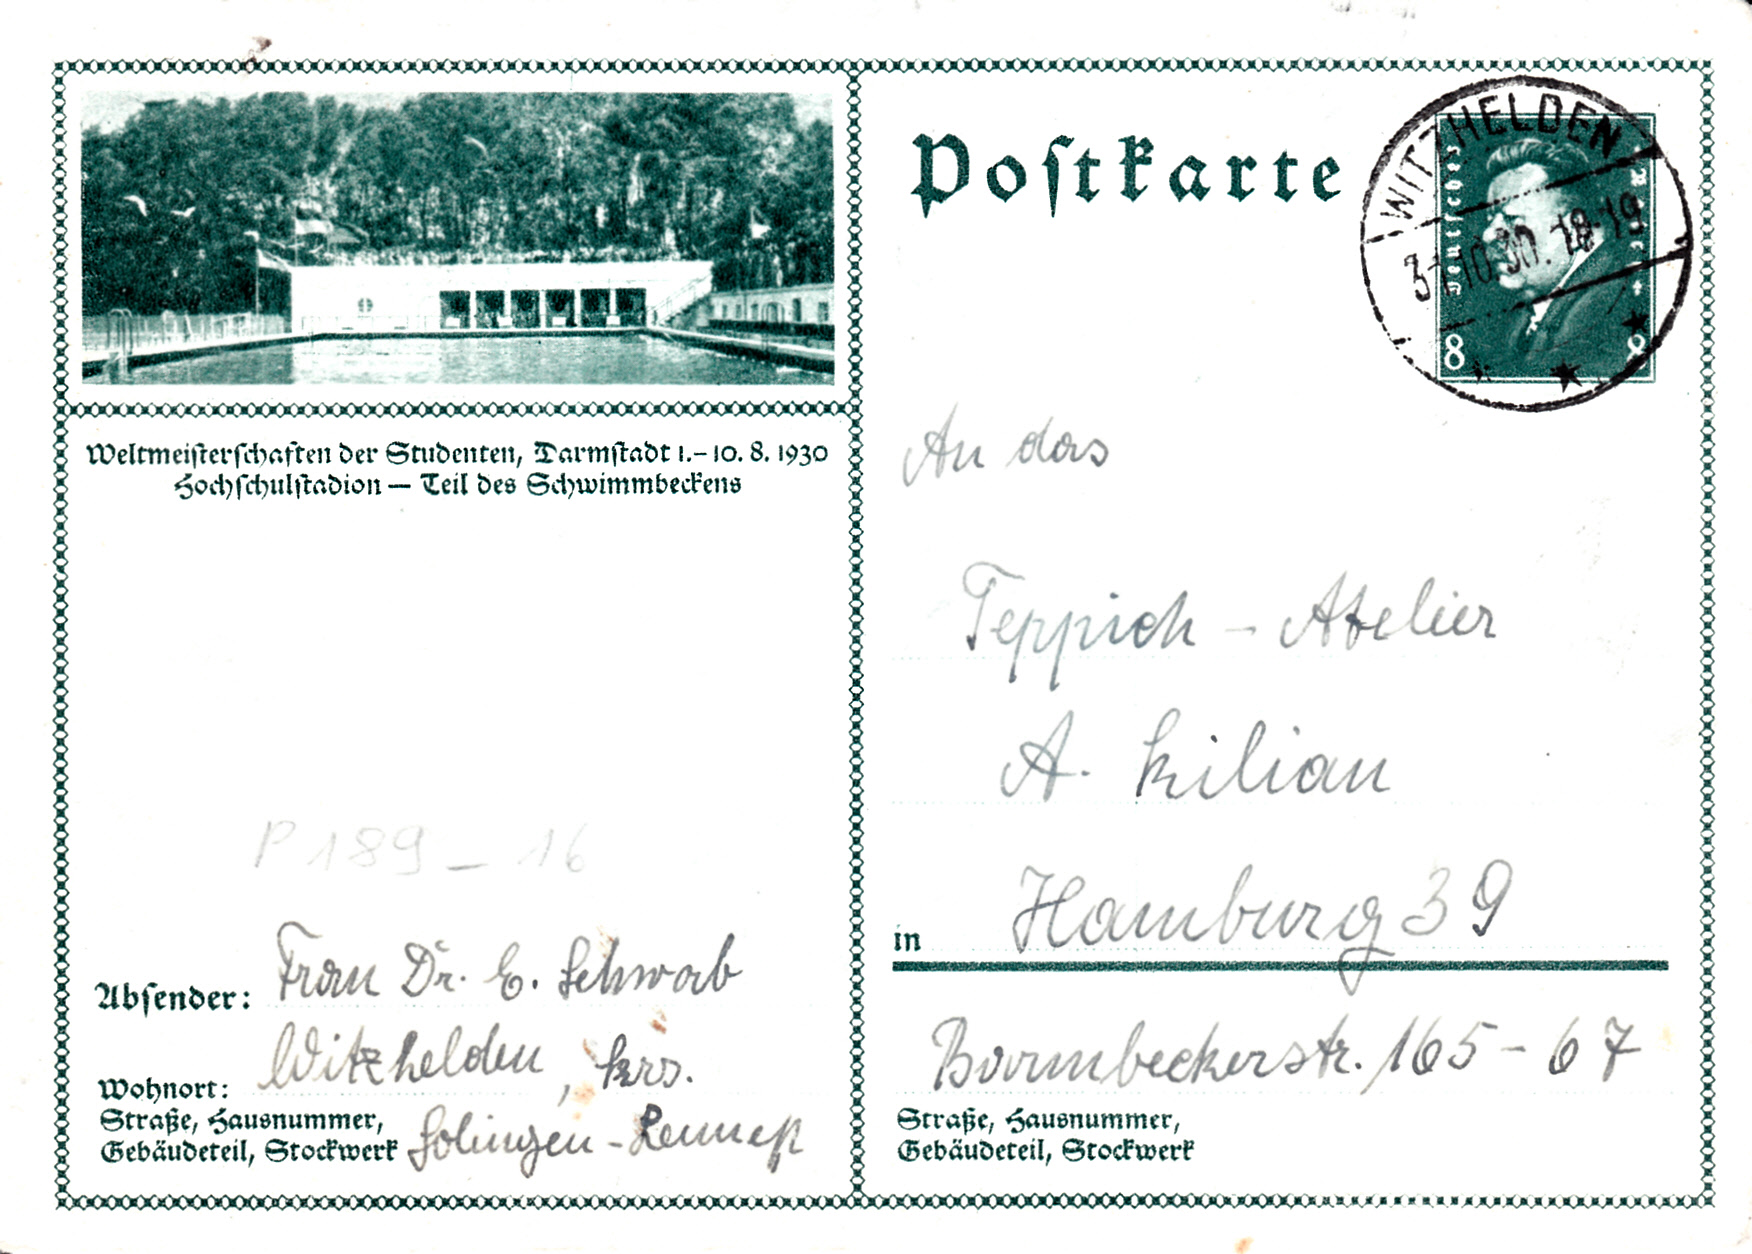 Weltmeisterschaften der Studenten, Darmstadt 1.–10. 8. 1930
Hochschulstadion — Teil des Schwimmbeckens
P 189 – 16
Absender: Frau Dr. E. Schwab
Wohnort: Witzhelden, Krs.
Straße, Hausnummer,
Gebäudeteil, Stockwerk Solingen-Lennep
Postkarte
WITZHELDEN
31.10.30. 18-19
Deutsches Reich
8 8
An das
Teppich – Atelier
A. Kilian
in Hamburg 39
Barmbeckerstr. 165 – 67
Straße, Hausnummer,
Gebäudeteil, Stockwerk